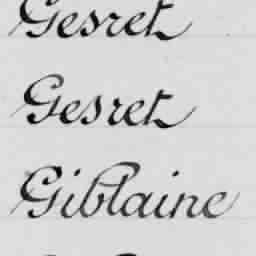 Gesret
Gesret
Giblaine